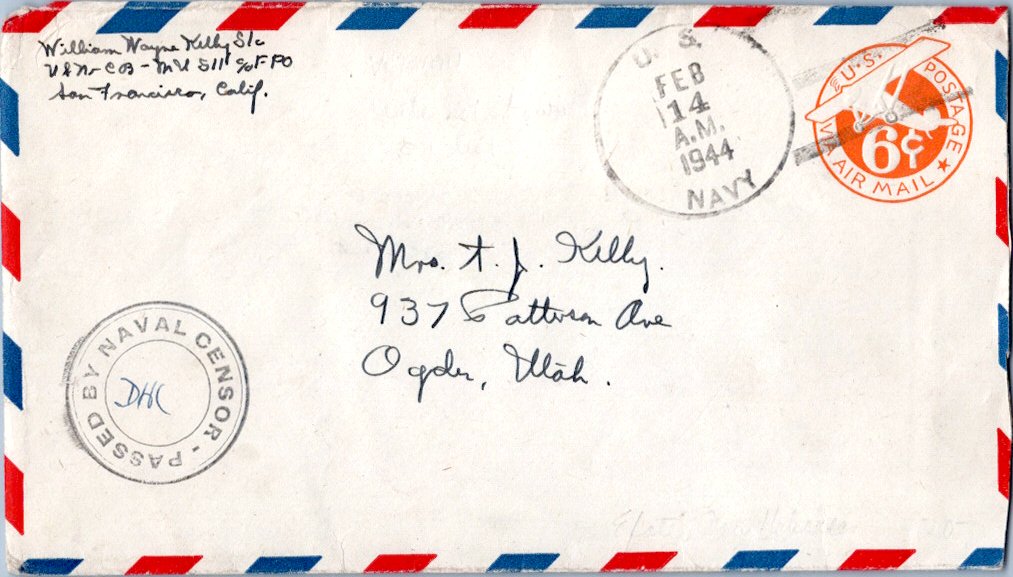 William Wayne Kelly S/c
USN-CB-MU 511 %FPO
San Francisco, Calif.
U. S.
FEB
14
A.M.
1944
NAVY
U.S. POSTAGE
6¢
VIA AIR MAIL
Mrs. t. J. Kelly.
937 Patterson Ave
Ogden, Utah.
PASSED BY NAVAL CENSOR -
DHC